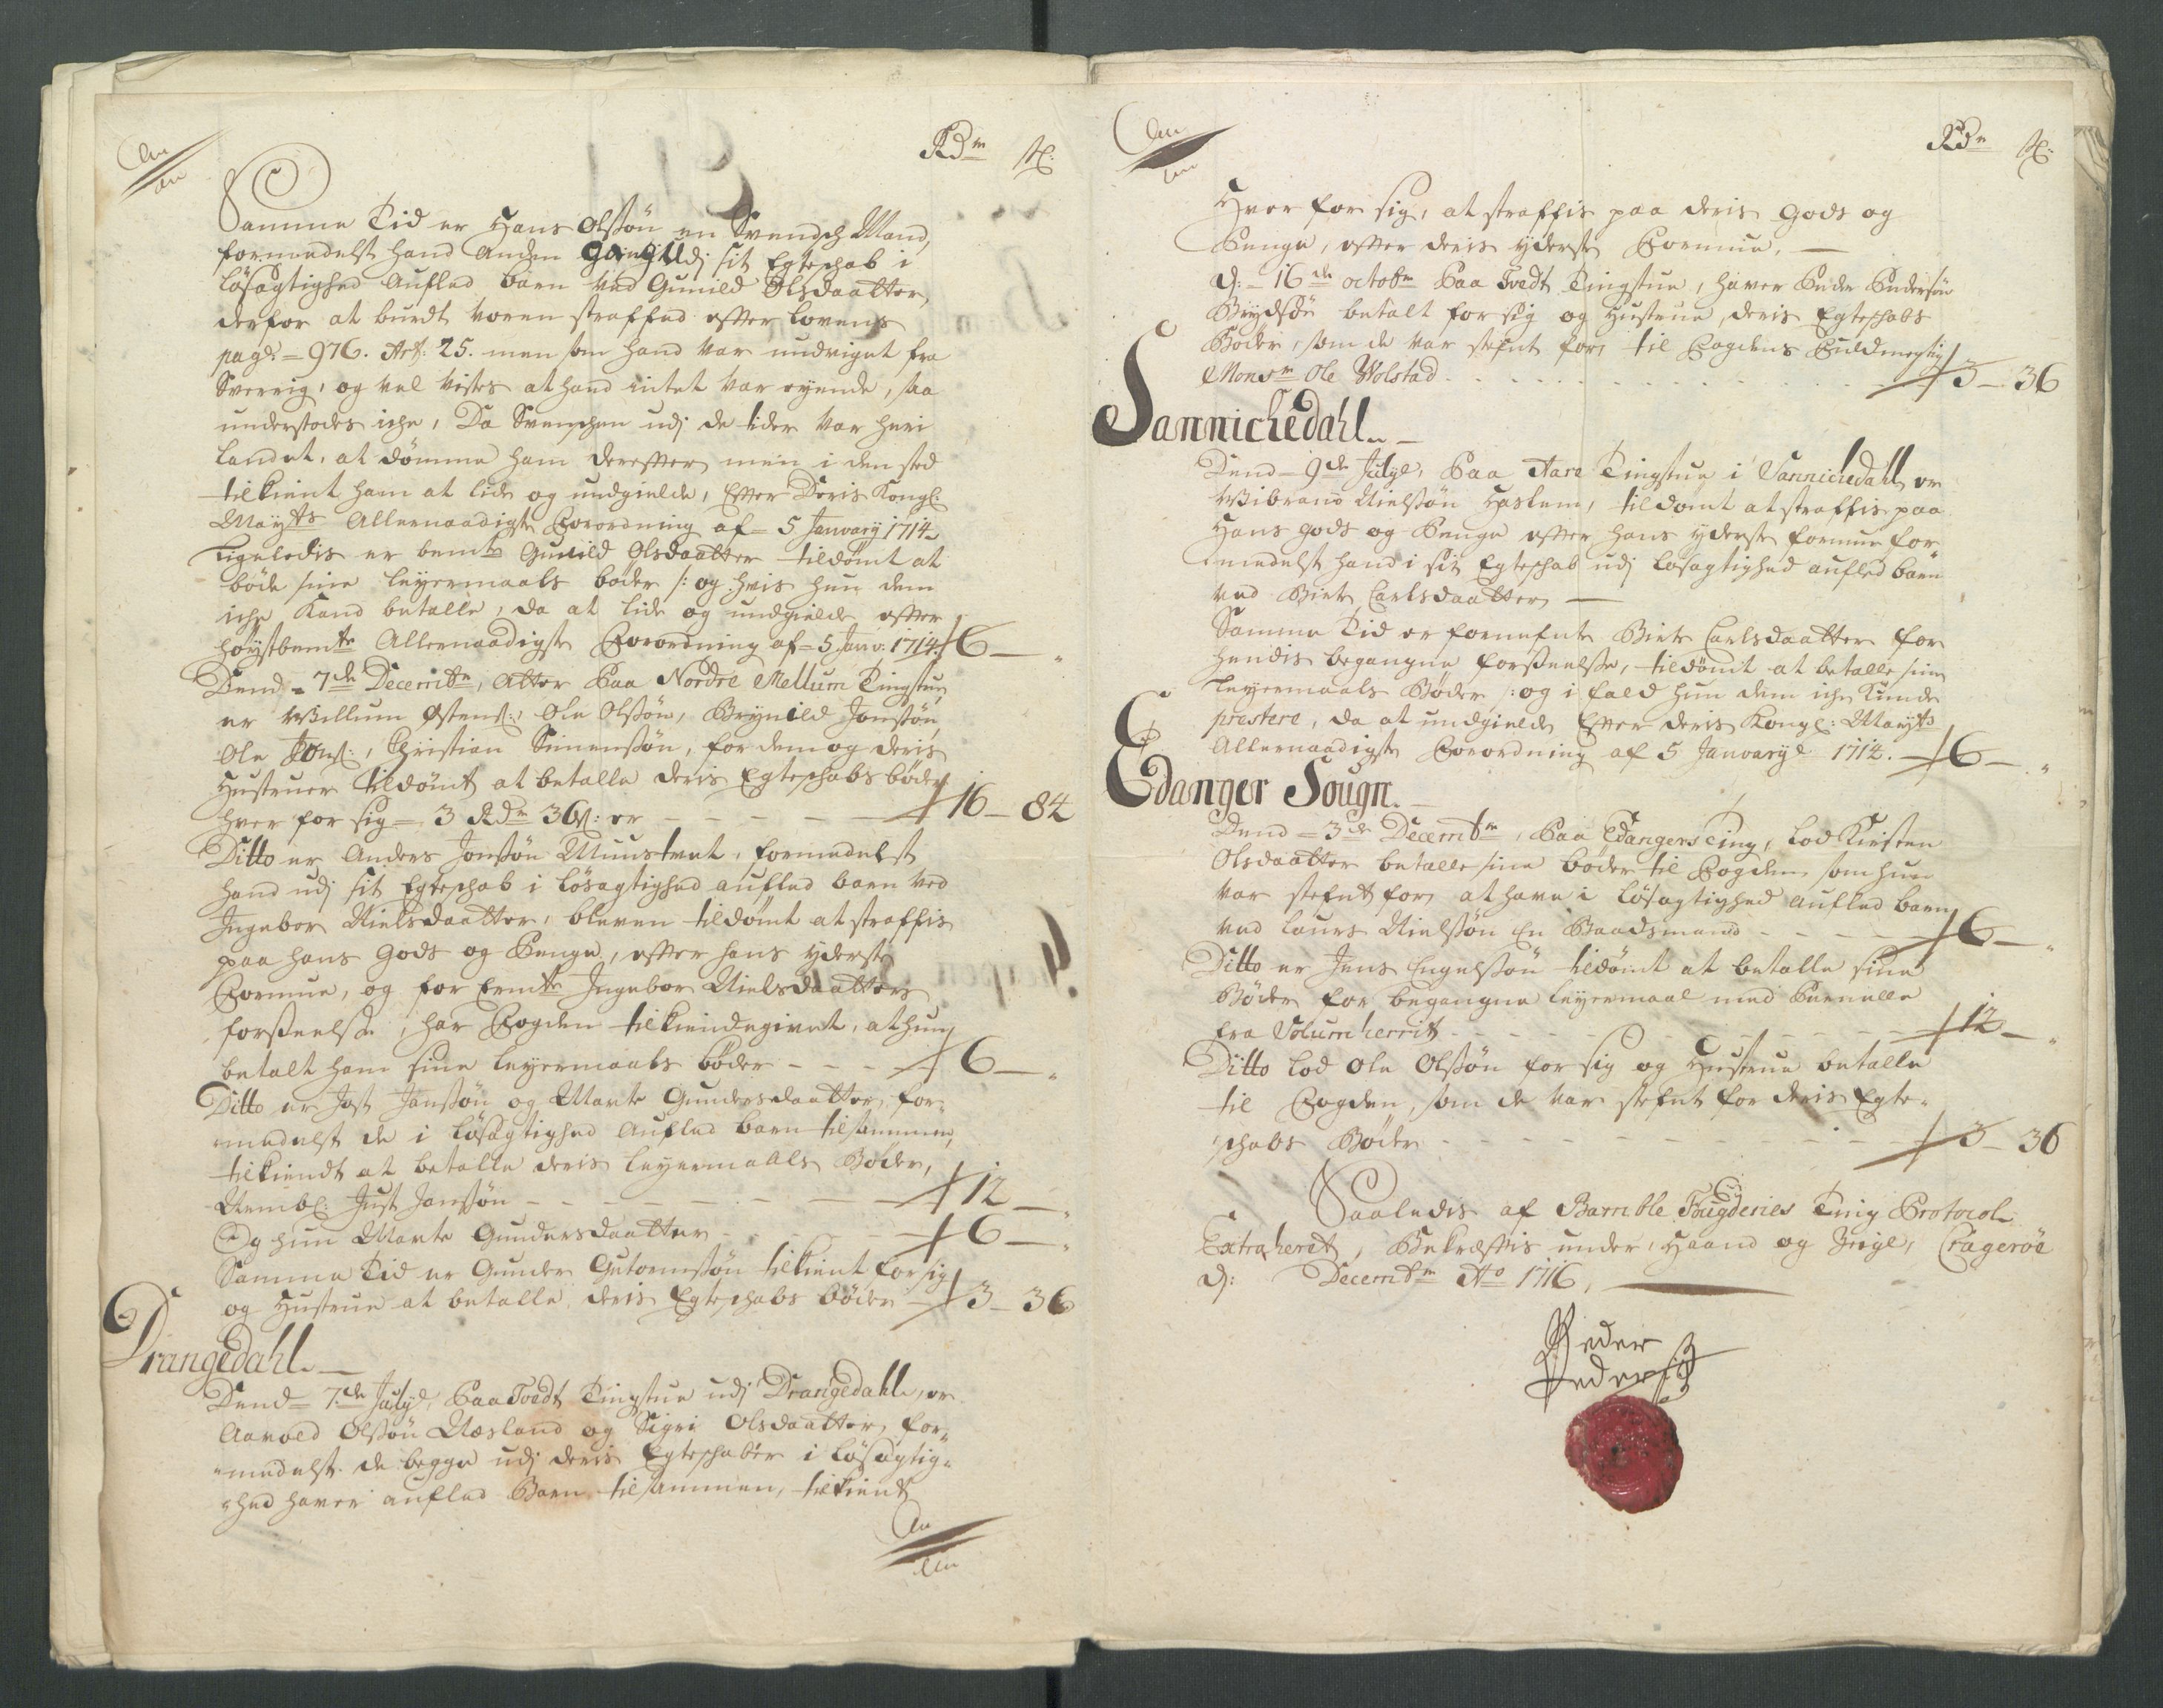 Rdr ß:
Samme Tid er Hans Olssøn en Svendsch Mand,
formedelst hand Anden gang udj sit Egteschab i
løsagtighed Aufled barn ved Gunild Olsdaatter,
derfor at burdt voren straffed effter lovens
pag: 976. Art: 25. men som hand var undviget fra
Sverrig, og vel vistes at hand intet var eyende, saa
understodes iche, Da Svenschen udj de tider var heri
Landet, at dømme ham dereffter, men i den sted
tilkient ham at lide og undgielde, Effter Deris Kongl:
Mayts Allernaadigste Forordning af 5 January 1714
Ligeledis er bemte Gunild Olsdaatter tildømt at
bøde sine leyermaals bøder /: og hvis hun dem
iche kand betalle, da at lide og undgielde effter
høystbemte Allernaadigste Forordning af 5 Janv: 1714 6 — "
Dend 7de Decembr, Atter Paa Nordre Mellum Tingstue,
er Willum Østens:, Ole Olssøn, Brynild Jonssøn,
Ole Jons:, Christian Simenssøn, for dem og deris
Hustruer tildømt at betalle deris Egteschabs bøder
hver for sig 3 Rdr 36 ß: er 16 — 84
Ditto er Anders Jonssøn Muustvet, formedelst
hand udj sit Egteschab i løsagtighed aufled barn ved
Ingebor Nielsdaatter, bleven tildømt at straffis
paa hans gods og Penge, effter hans yderste
Formue, og for bemte Ingebor Nielsdaatters
forseelse, har Fogden tilkiendegivet, at hun
betalt ham sine leyermaals bøder 6 — "
Ditto er Just Janssøn og Marte Gundersdaatter, for¬
medelst de i løsagtighed Aufled barn tilsammen,
tilkiendt at betalle deris leyermaals Bøder,
Nembl: Just Janssøn 12 — "
Og hun Marte Gundersdaatter 6 — "
Samme Tid er Gunder Gutormssøn tilkient for sig
og Hustrue at betalle deris Egteschabs bøder 3 — 36
Drangedahl.
Dend 7de July Paa Tvedt Tingstue udj Drangedahl, er
Aavold Olssøn Næsland og Sigri Olsdaatter, for¬
medelst de begge udj deris Egteschaber i løsagtig¬
hed haver aufled Barn tilsammen, tilkient
Rdr ß:
Hver for sig, at straffis paa deris gods og
Penge, effter deris yderste Formue,
D: 16de octobr Paa Tvedt Tingstue, haver Peder Pedersøn
betalt for sig og Hustrue, deris Egteschabs
Bøder, som de var stefnt for, til Fogdens Fuldmegtig
Monsr Ole Wolstad 3 — 36
Sannichedahl.
Dend 9de Julye, Paa Aare Tingstue i Sannichedahl, er
Wibrand Nielssøn Haslem, tildømt at straffis paa
Hans gods og Penge effter hans yderste formue for¬
medelst hand i sit Egteschab udj løsagtighed aufled barn
ved Birte Carlsdaatter
Samme Tid er fornefnte Birte Carlsdaatter for
hendis begangne forseelse, tildømt at betalle sine
leyermaals Bøder /: og i fald hun dem iche kunde
prestere, da at undgielde Effter deris Kongl: Mayts
Allernaadigste Forordning af 5 Januarye 1714. 6 — "
Edanger Sougn.
Dend 3de Decembr, Paa Edangers Ting, lod Kirsten
Olsdaatter betalle sine bøder til Fogden, som hun
var stefnt for, at have i løsagtighed aufled barn
ved Laurs Nielssøn En Baadsmand 6 — "
Ditto er Jens Engelssøn tildømt at betalle sine
Bøder for begangne leyermaal med Pernille
fra Solumherrit 12 — "
Ditto lod Ole Olssøn for sig og Hustrue betalle
til Fogden, som de var stefnt for deris Egte¬
schabs Bøder 3 — 36
Saaledis af Bamble Fougderies Ting Protocol
Extraherit, Bekræfftis under Haand og Zeigl, Cragerøe
d: Decembr Ao 1716,
Peder
Peders: